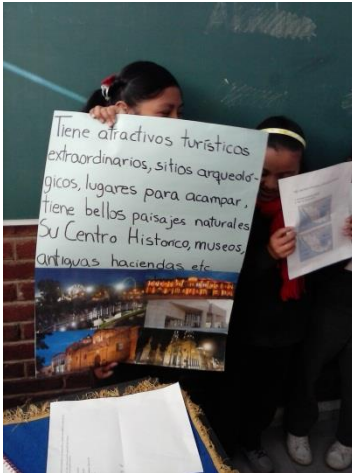 Tiene atractivos turísticos
extraordinarios, sitios arqueoló-
gicos, lugares para acampar,
tiene bellos paisajes naturales
Su Centro Historico, museos,
antiguas haciendas etc